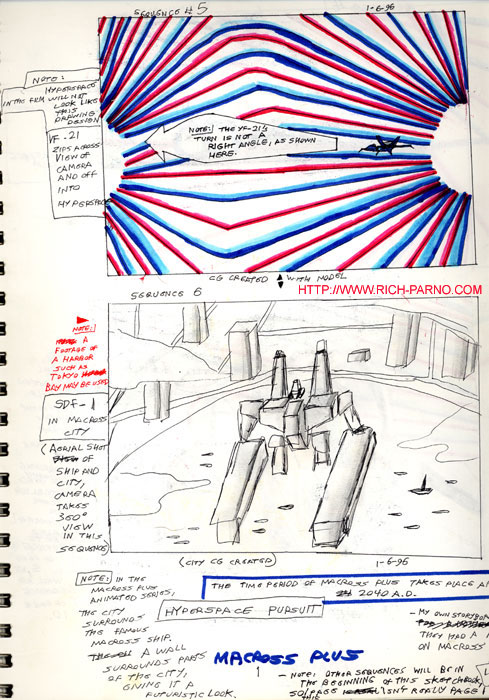 SEQUENCE #5
1-6-96
NOTE:
HYPERSPACE
IN THE FILM WILL NOT
LOOK LIKE
THIS
DRAWING
DESIGN
YF-21
ZIPS ACROSS
VIEW OF
CAMERA
AND OFF
INTO
HYPERSPACE
NOTE: THE YF-21'S
TURN IS NOT A
RIGHT ANGLE, AS SHOWN
HERE.
CG CREATED WITH MODEL
HTTP://WWW.RICH-PARNO.COM
SEQUENCE 6
NOTE:
A
FOOTAGE OF
A HARBOR
SUCH AS
TOKYO
BAY MAY BE USED
SDF-1
IN MACROSS
CITY
(AERIAL SHOT
OF
SHIP AND
CITY,
CAMERA
TAKES
360°
VIEW
IN THIS
SEQUENCE)
(CITY CG CREATED)
1-6-96
NOTE: IN THE
MACROSS PLUS
ANIMATED SERIES,
THE CITY
SURROUNDS
THE FAMOUS
MACROSS SHIP.
A WALL
SURROUNDS PARTS
OF THE CITY,
GIVING IT A
FUTURISTIC LOOK.
THE TIME PERIOD OF MACROSS PLUS TAKES PLACE
2040 A.D.
HYPERSPACE PURSUIT
MACROSS PLUS
1
- MY OWN STORYBO
THEY HAD A
ON MACROSS
- NOTE: OTHER SEQUENCES WILL BE IN
THE BEGINNING OF THIS SKETCHBOOK,
SO PAGE ISN'T REALLY PAGE 1